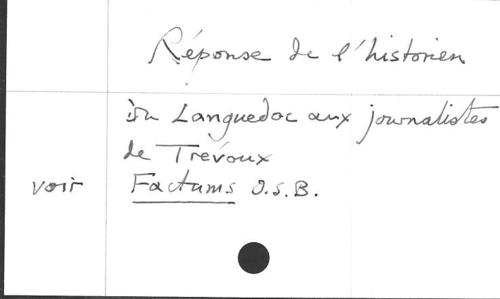 Réponse de l'historien
du Languedoc aux journalistes
de Trévoux
voir Factums O.S.B.